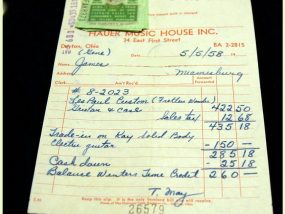 HAUER MUSIC HOUSE INC.
34 East First Street
Dayton, Ohio BA 2-2815
5/5/58
James
Miamisburg
# 8-2023
Les Paul Custom (Fretless Wonder)
Guitar & Case 422 50
Sales tax 12 68
435 18
Trade-in on Kay Solid Body
Electric guitar - 150 -
285 18
Cash down - 25 18
Balance Winters Time Credit 260 -
T. May
26579